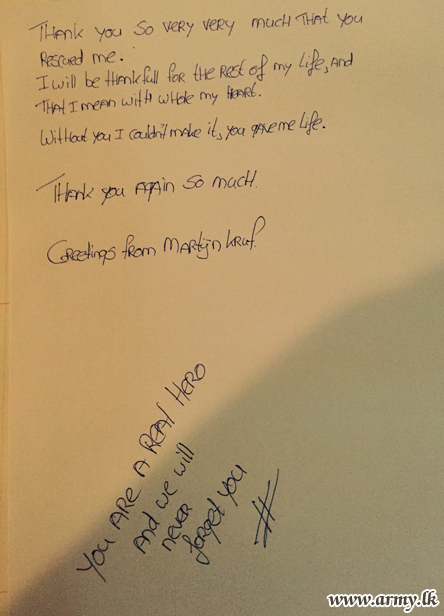 Thank you so very very much that you
rescued me.
I will be thankfull for the rest of my life, and
that I mean with whole my heart.
Without you I couldn't make it, you gave me life.
Thank you again so much.
Greetings from Martijn
You are a real hero
and we will
never
forget you
www.army.lk